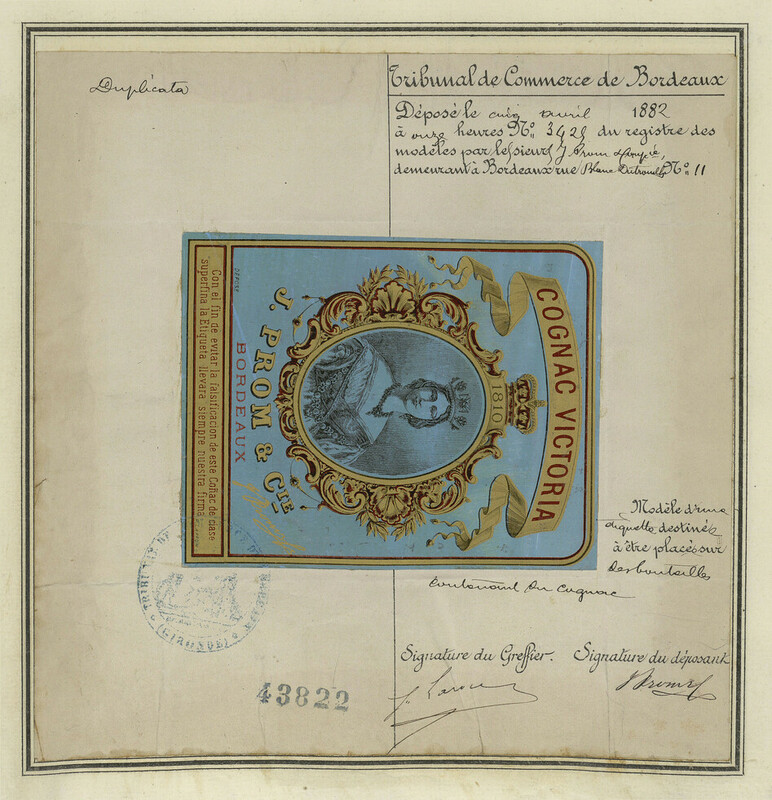 Duplicata
Tribunal de Commerce de Bordeaux
Déposé le cinq avril 1882
à onze heures No. 3425 du registre des
modèles par les sieurs J. Prom & Compie,
demeurant à Bordeaux rue Blanc Dutrouilh No. 11
COGNAC VICTORIA
1810
J. PROM & CIE
BORDEAUX
DÉPOSÉ
Con el fin de evitar la falsificacion de este Coñac de clase
superfina la Etiqueta llevara siempre nuestra firma
Modèle d'une
étiquette destinée
à être placée sur
des bouteilles
contenant du cognac
TRIBUNAL DE COMMERCE DE BORDEAUX
(GIRONDE)
Signature du Greffier. Signature du déposant
43822